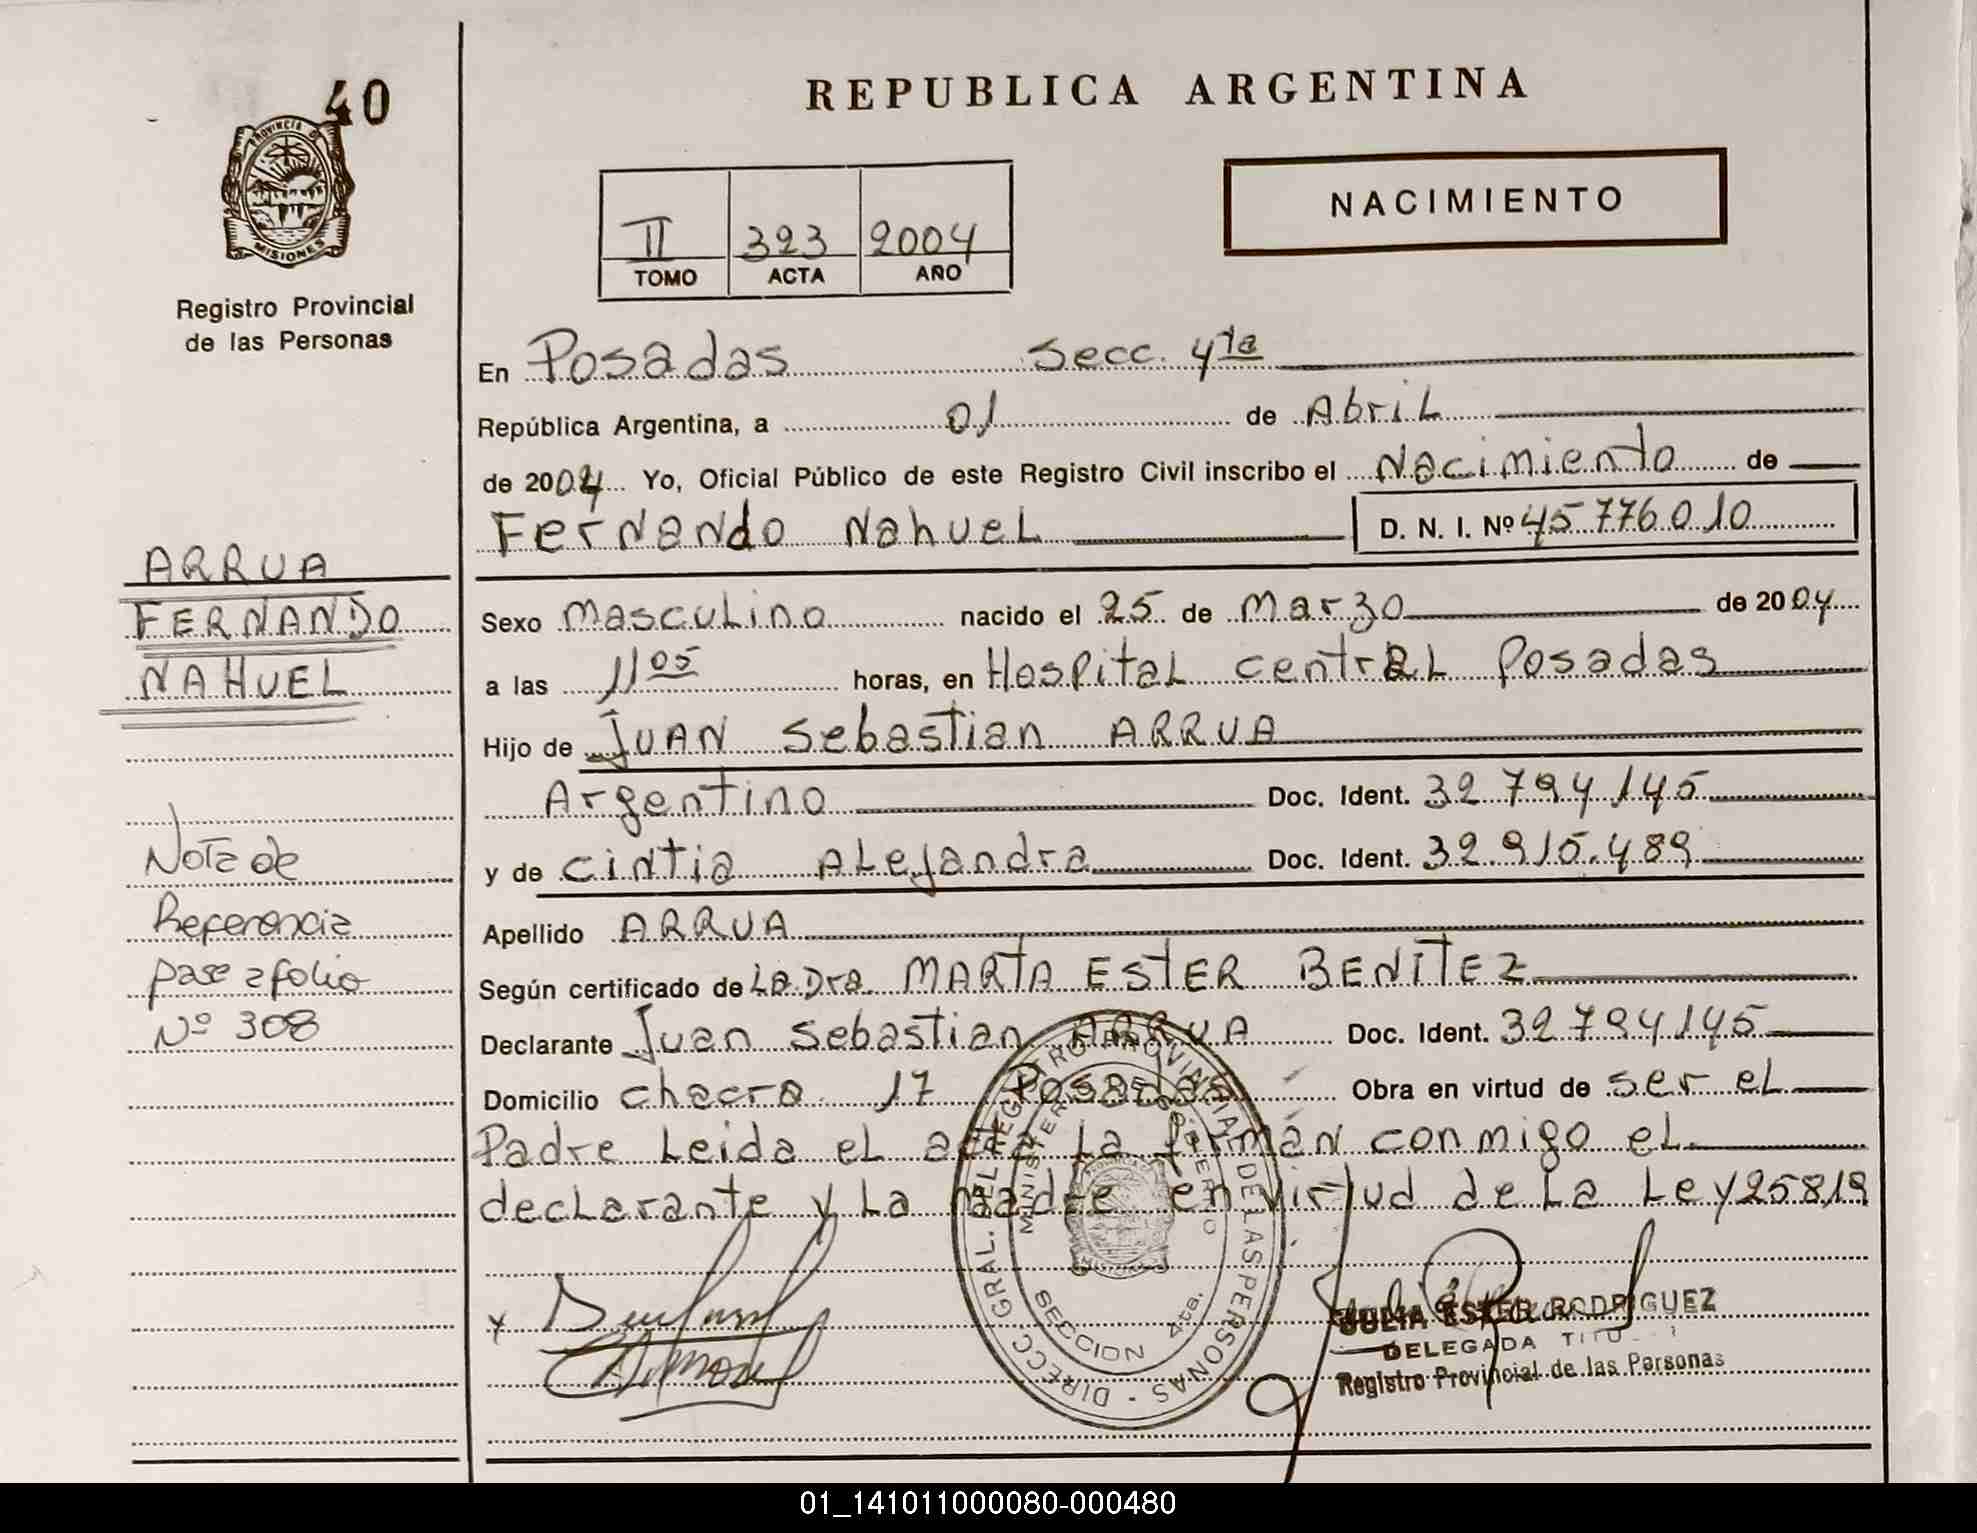 40
PROVINCIA DE
MISIONES
Registro Provincial
de las Personas
ARRUA
FERNANDO
NAHUEL
Nota de
Referencia
pase a folio
Nº 308
REPUBLICA ARGENTINA
II 323 2004
TOMO ACTA AÑO
NACIMIENTO
En Posadas Secc. 4ta
República Argentina, a 01 de Abril
de 2004 Yo, Oficial Público de este Registro Civil inscribo el Nacimiento de
Fernando Nahuel D. N. I. Nº 45776010
Sexo Masculino nacido el 25 de Marzo de 2004
a las 11 05 horas, en Hospital central Posadas
Hijo de Juan Sebastian ARRUA
Argentino Doc. Ident. 32.794.145
y de Cintia Alejandra Doc. Ident. 32.915.489
Apellido ARRUA
Según certificado de La Dra. MARTA ESTER BENITEZ
Declarante Juan Sebastian ARRUA Doc. Ident. 32.794.145
Domicilio chacra 17 Posadas Obra en virtud de ser el
Padre Leida el acta La firman conmigo el
declarante y La Madre en virtud de La Ley 25819
DIRECC GRAL. DEL REGISTRO PROVINCIAL DE LAS PERSONAS
SECCION 4ta.
JULIA ESTER RODRIGUEZ
DELEGADA
Registro Provincial de las Personas
01_141011000080-000480